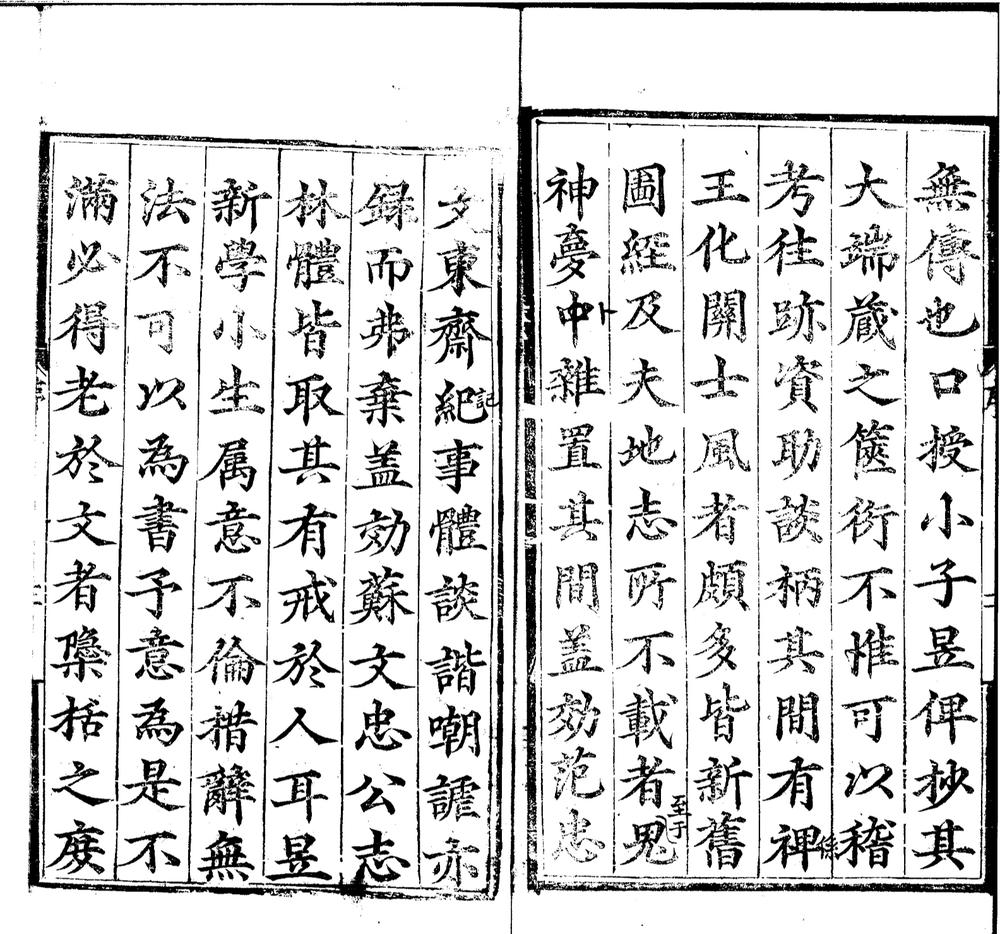 無傳也口授小子昱俾抄其
大端蔵之篋衍不惟可以稽
考往跡資助談柄其間有裨
王化關士風者頗多皆新舊
圖經及夫地志所不載者思
至于
神夢卜中雜置其間盖効范忠
文東齋紀事體談諧嘲謔亦
記
録而弗棄盖効蘇文忠公志
林體皆取其有戒於人耳昱
新學小生属意不倫措辭無
法不可以為書予意為是不
滿必得老於文者櫽括之庶